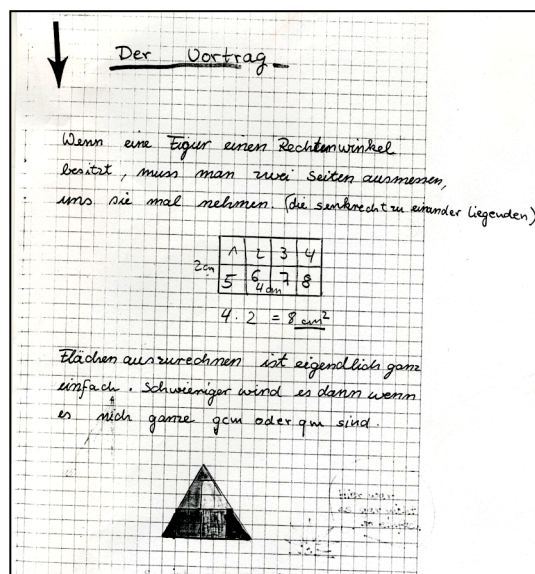 Der Vortrag
Wenn eine Figur einen Rechtenwinkel
besitzt, muss man zwei Seiten ausmessen,
uns sie mal nehmen. (die senkrecht zu einander liegenden)
1 2 3 4
2cm
5 6 7 8
4cm
4 · 2 = 8 cm²
Flächen auszurechnen ist eigendlich ganz
einfach. Schwieriger wird es dann wenn
es nich ganze qcm oder qm sind.